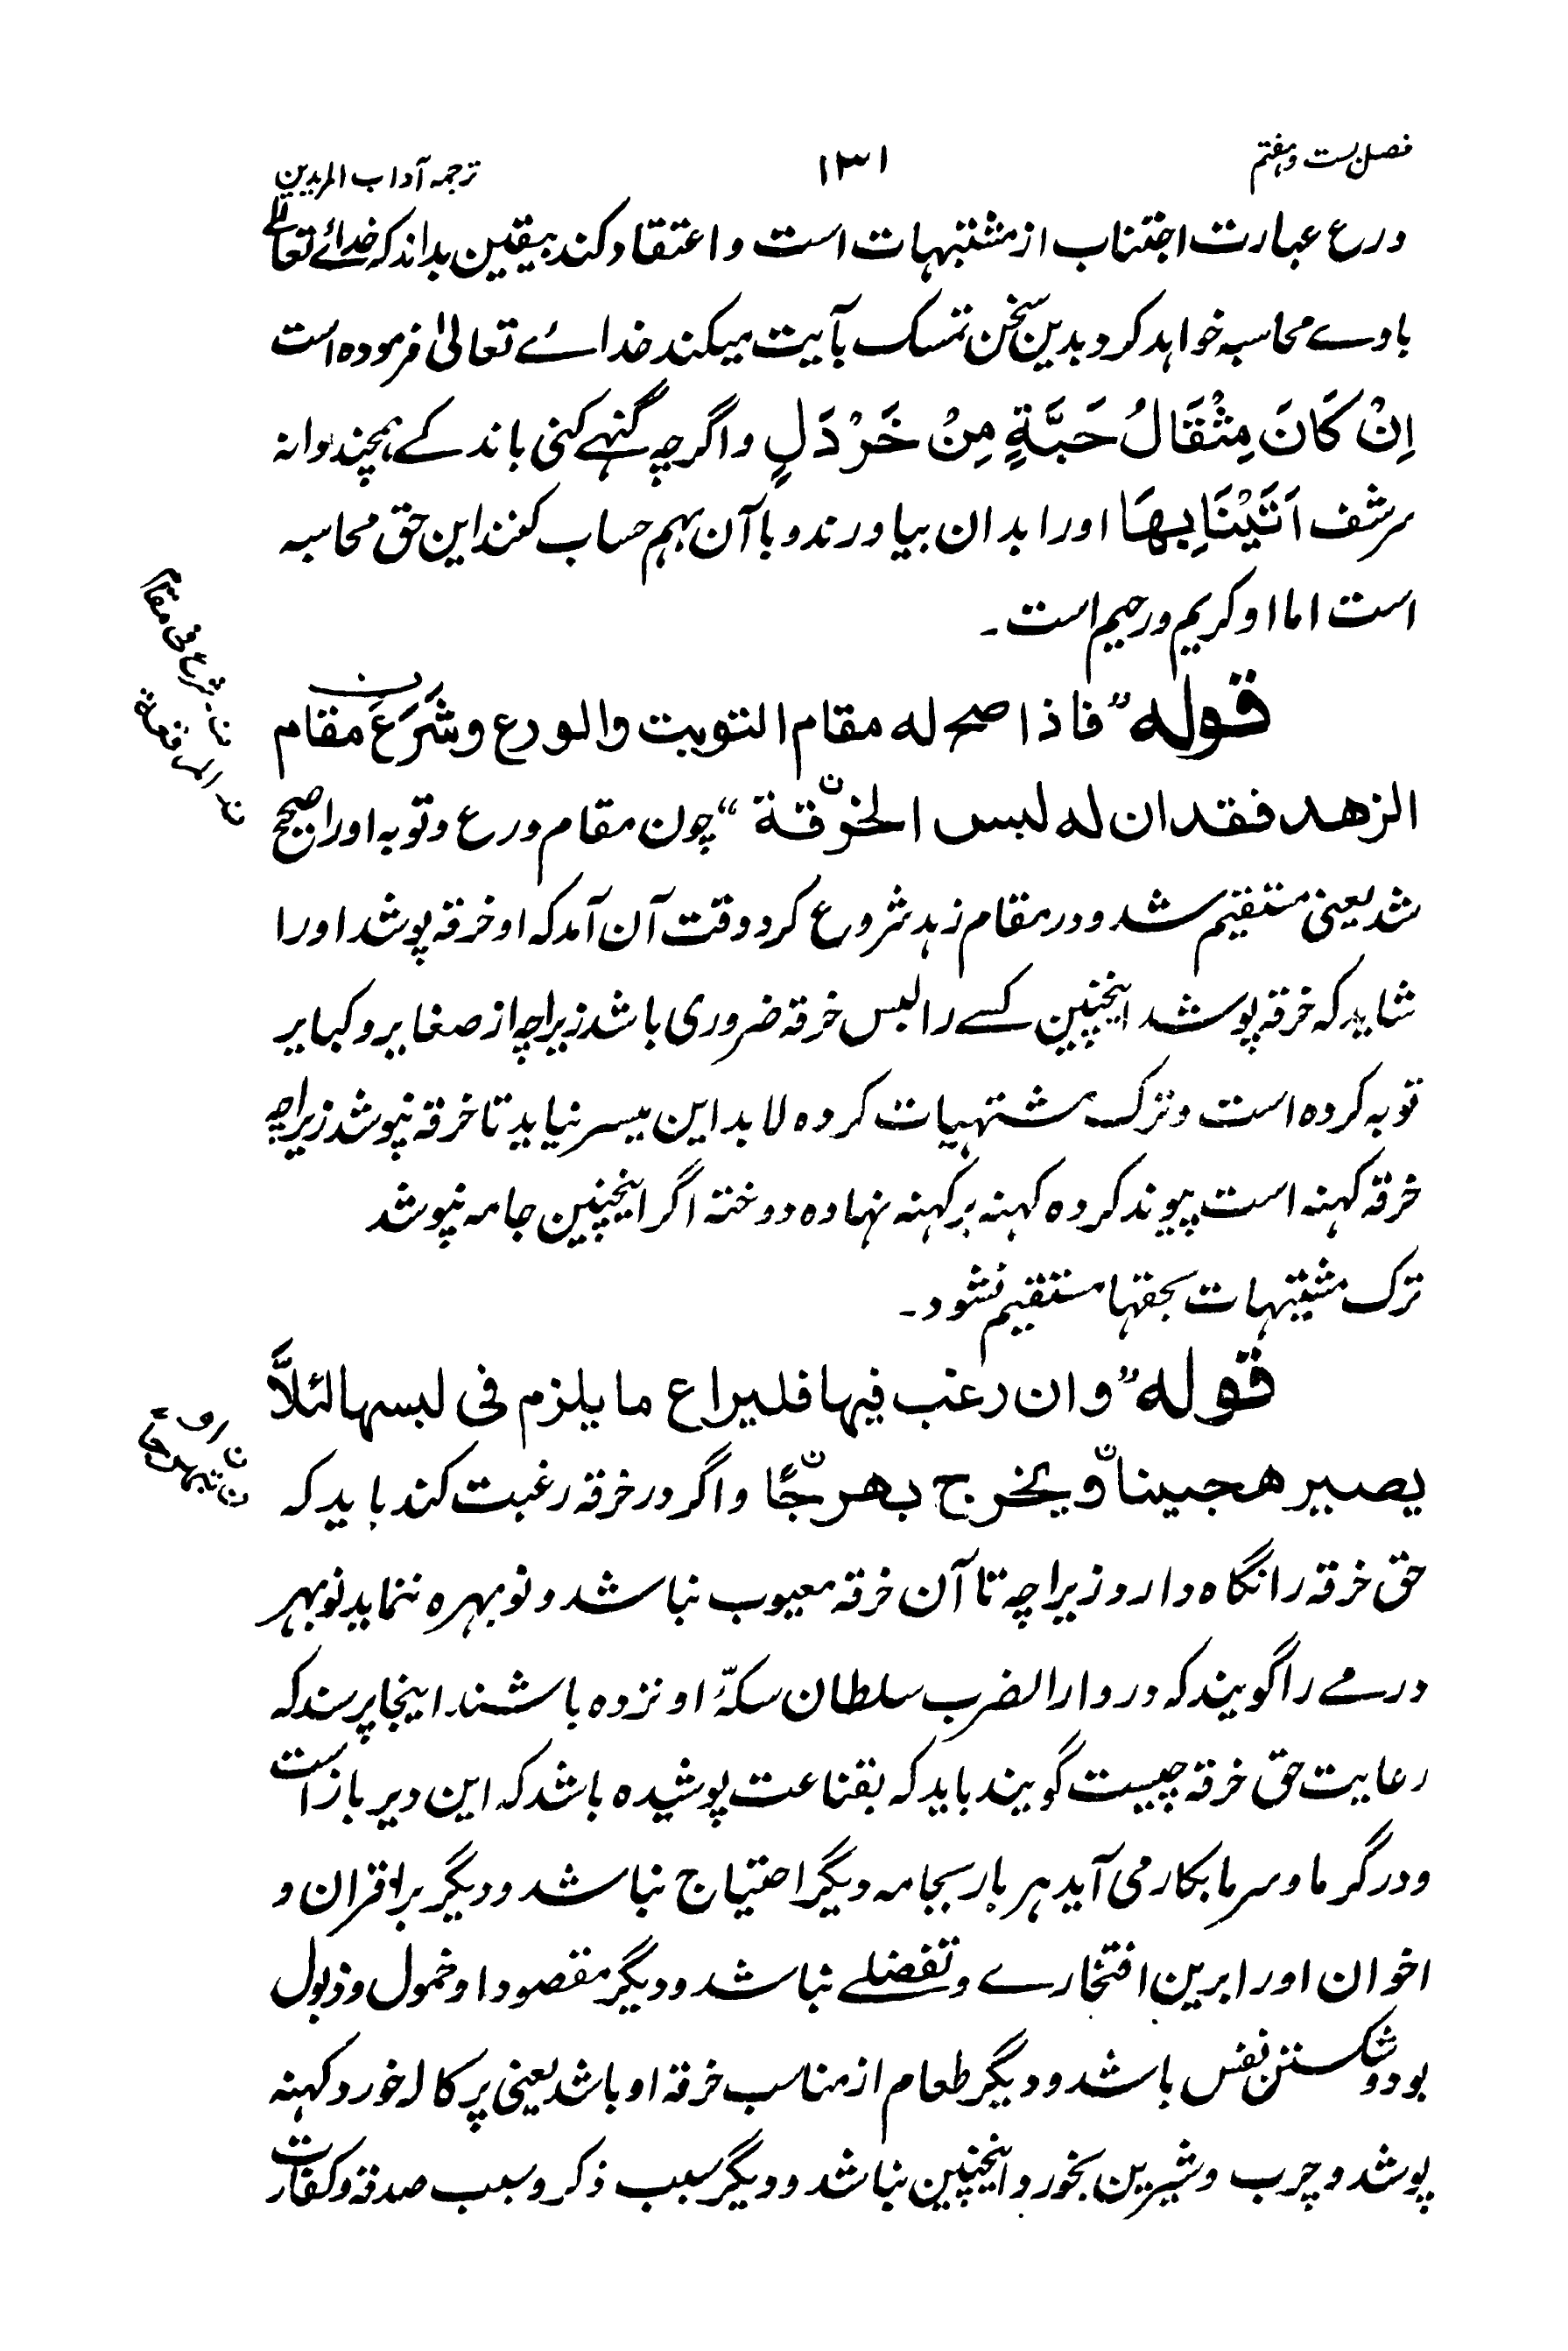 فصل بست و هفتم
۱۳۱
ترجمہ آداب المریدین
ورع عبارت اجتناب از مشتبہات است و اعتقاد کند بیقین بداند کہ خدائے تعالےٰ
باوے محاسبہ خواہد کرد بدین سخن تمسک بآیت میکند خداۓ تعالیٰ فرمودہ است
اِنْ کَانَ مِثْقَالُ حَبَّةٍ مِنْ خَرْدَلٍ و اگرچہ گنہے کنی باند کے ہمچند دانہ
سرشف اَتَیْنَا بِهَا اورا بدان بیاورند و با آن ہم حساب کنند این حق محاسبہ
است اما او کریم و رحیم است۔
قوله ״فاذا صح له مقام التوبت والورع وشَرَعَ مقام
الزهد فقد ان له لبس الخرقة״ چون مقام ورع و توبہ اورا صحیح
شد یعنی مستقیم شد و در مقام زہد شروع کرد وقت آن آمد کہ او خرقہ پوشد اورا
شاید کہ خرقہ پوشد اینچنین کسے را لبس خرقہ ضروری باشد زیراچہ از صغایر و کبایر
توبہ کردہ است و ترک مشتہیات کردہ لابد این میسر نیاید تا خرقہ نپوشد زیراچہ
خرقہ کہنہ است پیوند کردہ کہنہ بر کہنہ نہادہ دوختہ اگر اینچنین جامہ نپوشد
ترک مشتبہات بحقہا مستقیم نشود۔
قوله ״وان رغب فیها فلیراع ما یلزم فی لبسها لئلاَّ
یصیر هجینا و یخرج بهرجًا و اگر در خرقہ رغبت کند باید کہ
حق خرقہ را نگاہ دارد زیراچہ تا آن خرقہ معیوب نباشد و نوبہرہ ننماید نوبہر
درمے را گویند کہ در دارالضرب سلطان سکۂ او نزدہ باشند اینجا پرسند کہ
رعایت حق خرقہ چیست گویند باید کہ بقناعت پوشیدہ باشد کہ این دیر باز است
و در گرما و سرما بکار می آید ہر بار بجامہ دیگر احتیاج نباشد و دیگر بر اقران و
اخوان اورا برین افتخارے و تفضلے نباشد و دیگر مقصود او خمول و ذبول
بود و شکستن نفس باشد و دیگر طعام از مناسب خرقہ او باشد یعنی پرکالہ خورد کہنہ
پوشد و چرب و شیرین بخورد اینچنین نباشد و دیگر سبب ذکر و سبب صدقہ و کفارت